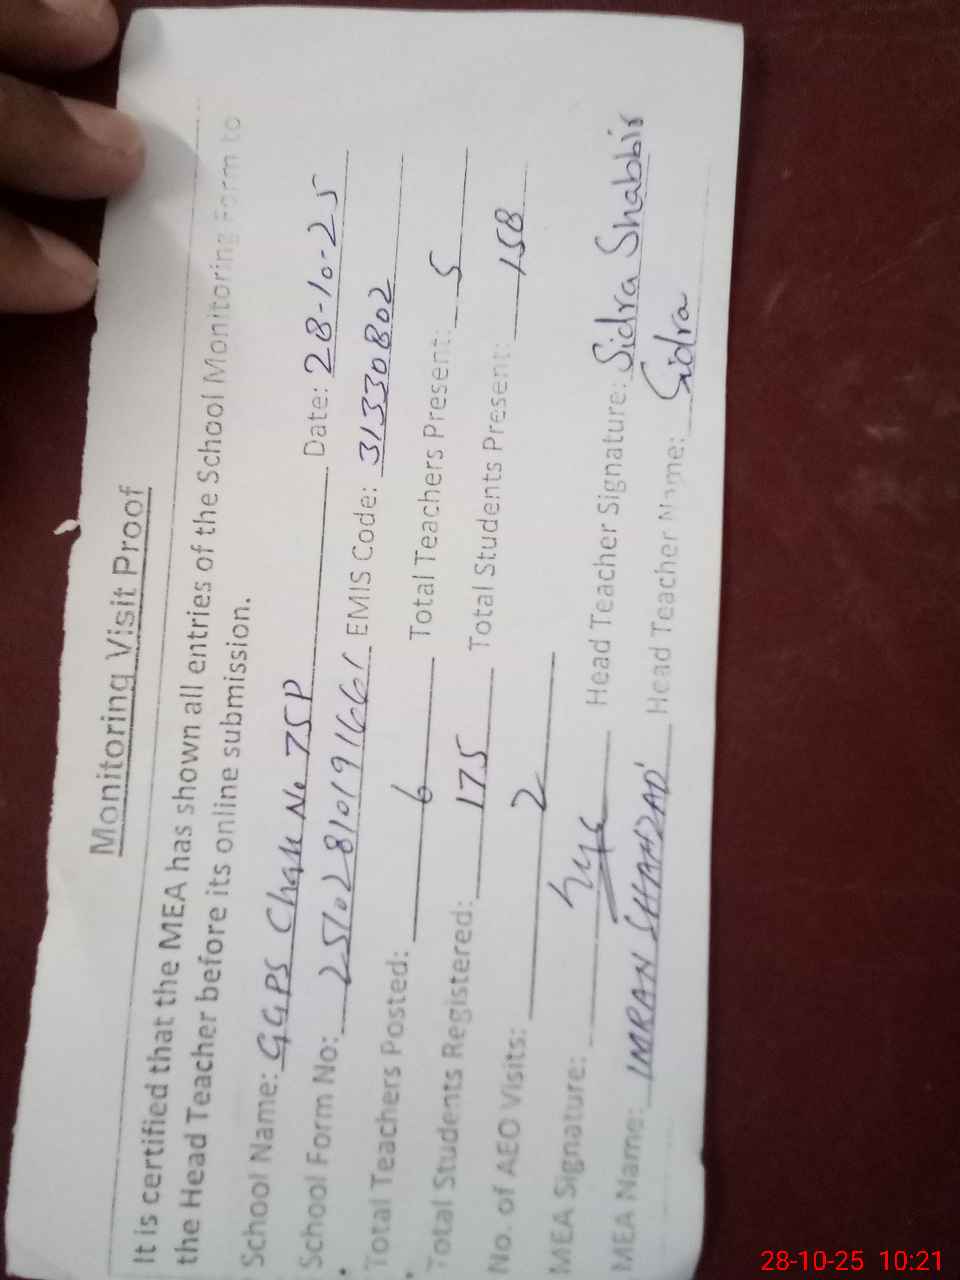 Monitoring Visit Proof
It is certified that the MEA has shown all entries of the School Monitoring Form to
the Head Teacher before its online submission.
School Name: GGPS Chak No 75P Date: 28-10-25
School Form No: 251028101916661 EMIS Code: 31330802
Total Teachers Posted: 6 Total Teachers Present: 5
Total Students Registered: 175 Total Students Present: 158
No. of AEO Visits: 2
MEA Signature: Head Teacher Signature: Sidra Shabbir
MEA Name: IMRAN SHAHZAD Head Teacher Name: Sidra
28-10-25 10:21